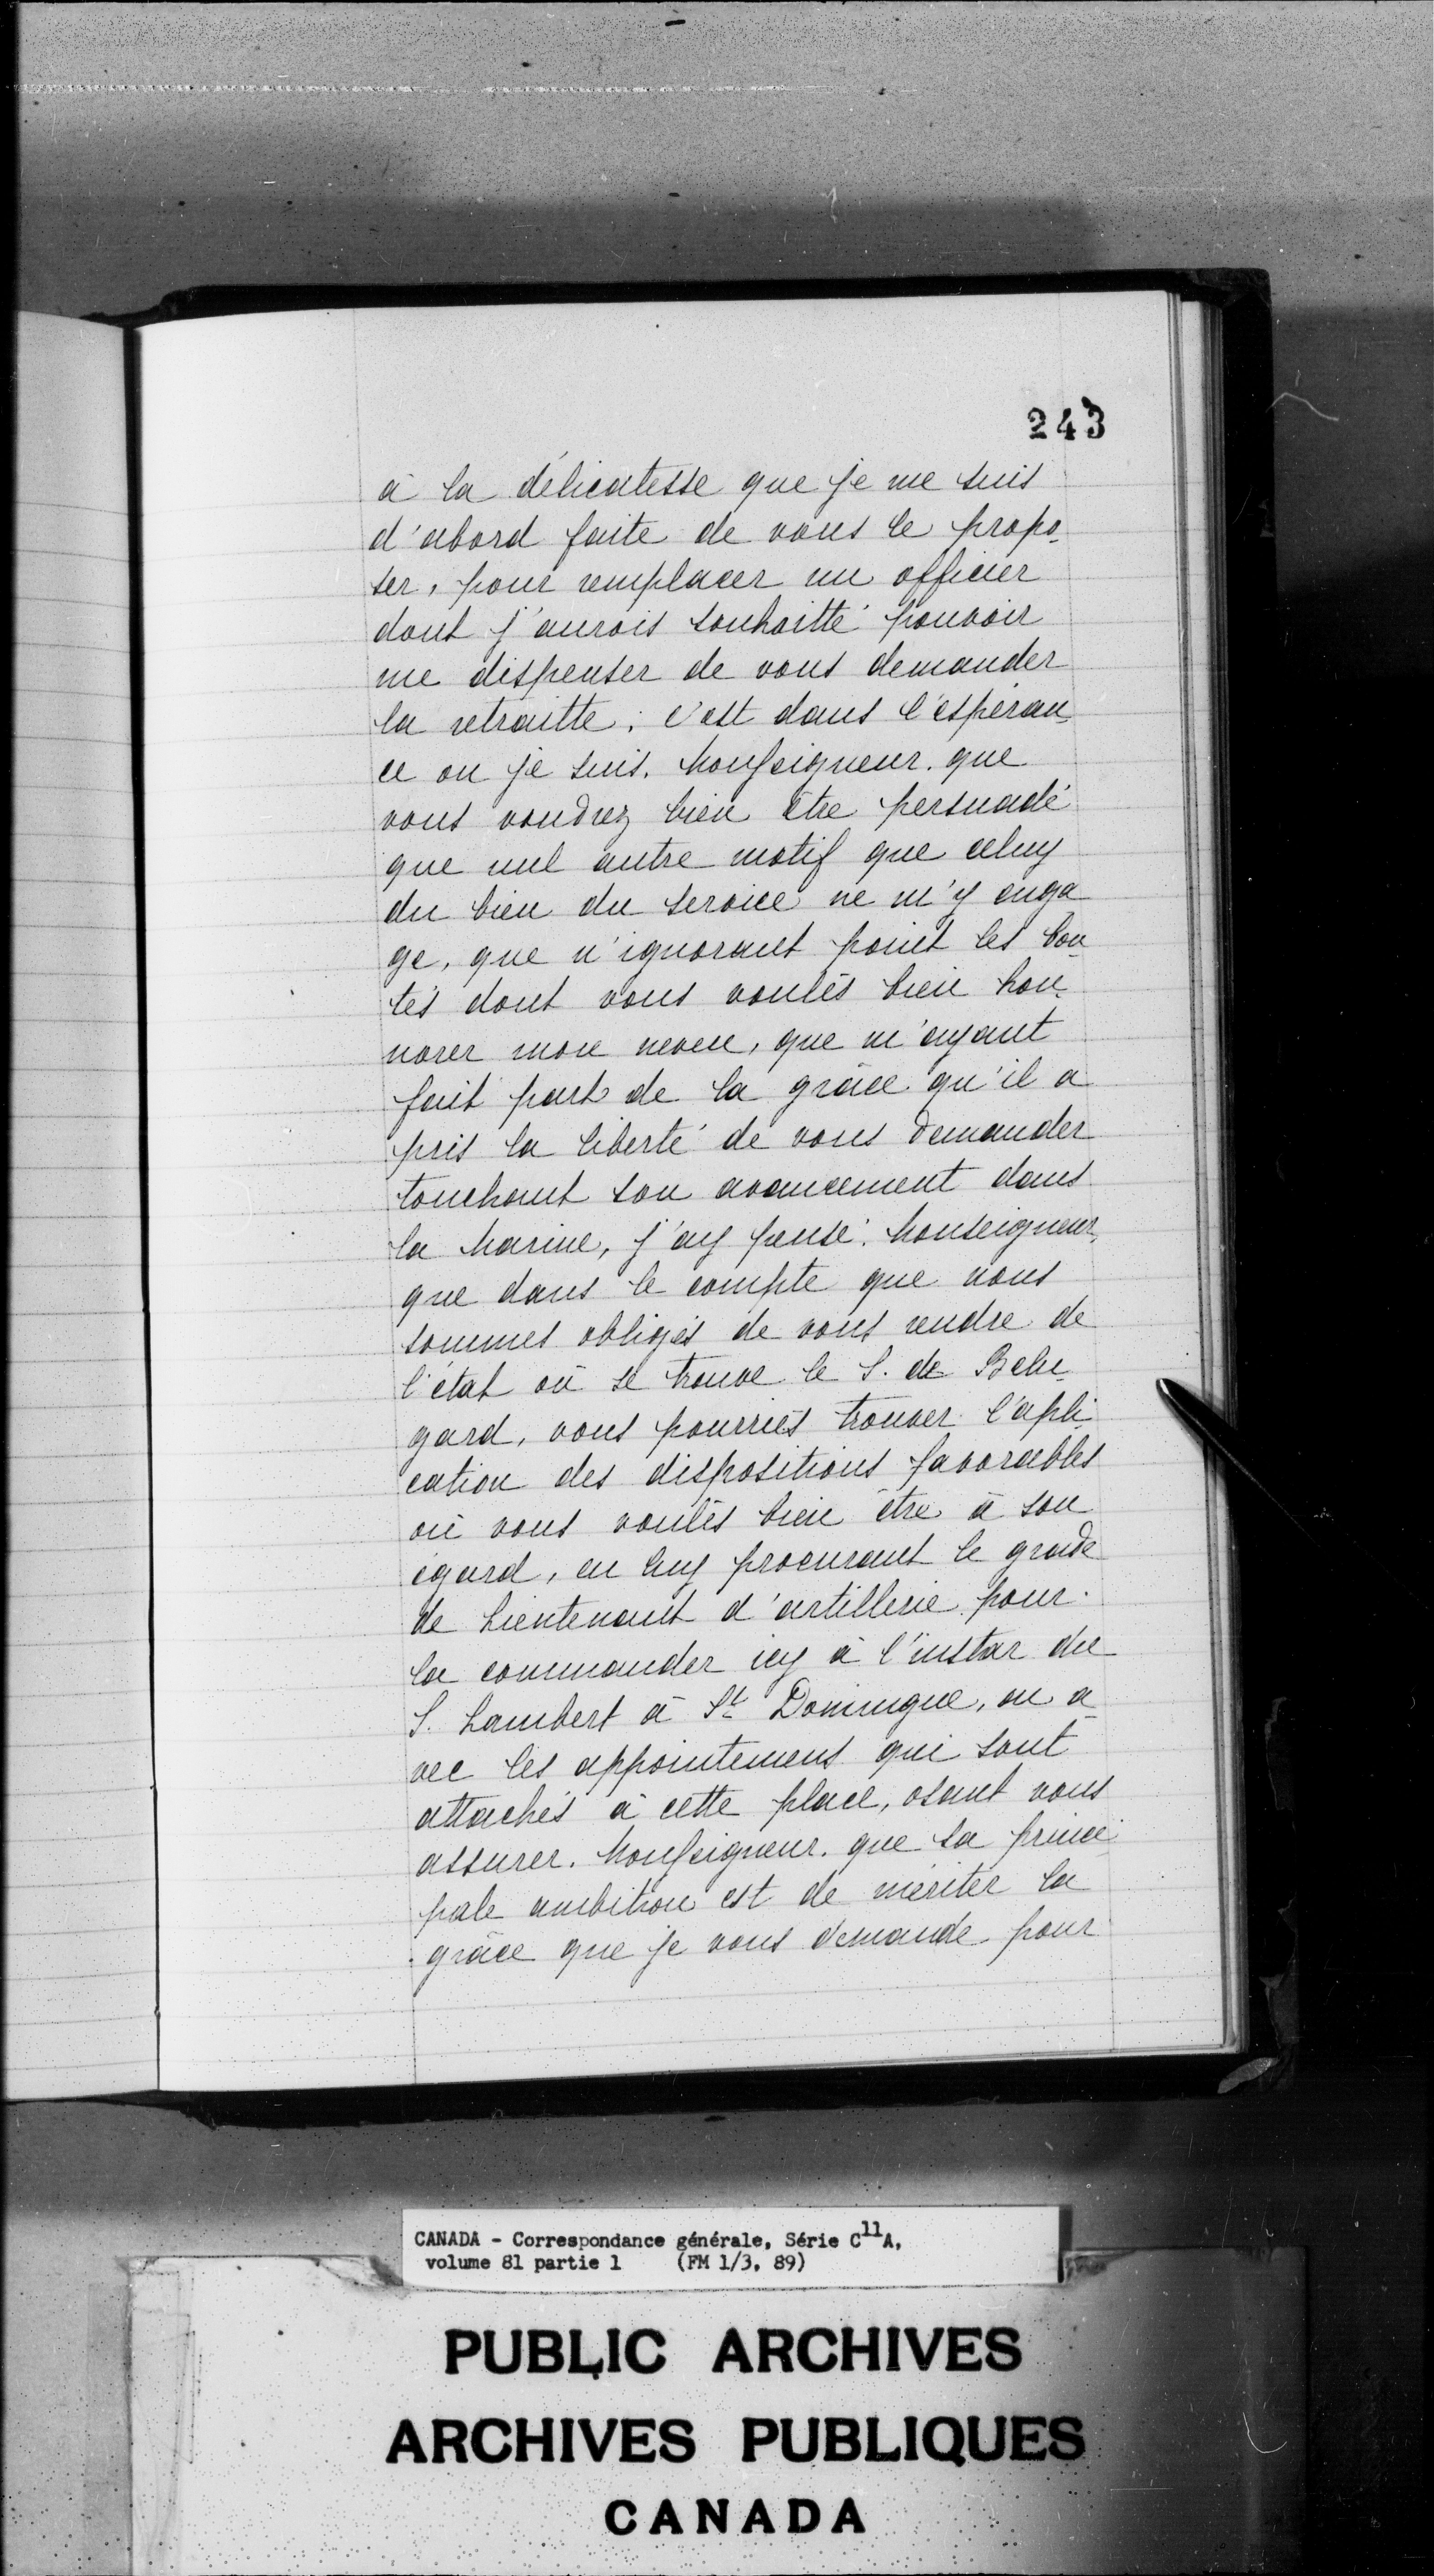 243
à la délicatesse que je me suis
d'abord faite de vous le propo-
ser, pour remplacer un officier
dont j'aurois souhaitté pouvoir
me dispenser de vous demander
la retraitte; c'est dans l'espéran-
ce ou je suis, Monseigneur, que
vous voudrez bien être persuadé
que nul autre motif que celuy
du bien du service ne m'y enga
ge, que n'ignorant point les bon-
tés dont vous voulés bien hon-
norer mon neveu, que m'ayant
fait part de la grâce qu'il a
pris la liberté de vous demander
touchant son avancement dans
la Marine, j'ay pensé, Monseigneur,
que dans le compte que nous
sommes obligés de vous rendre de
l'état où se trouve le S. de Bele-
gard, vous pourriés trouver l'apli-
cation des dispositions favorables
où vous voulés bien être à son
égard, en luy procurant le grade
de Lieutenant d'artillerie pour
la commander icy à l'instar du
S. Lambert à St Domingue, ou a-
vec les appointemens qui sont
attachés à cette place, osant vous
assurer, Monseigneur, que sa princi-
pale ambition est de mériter la
grâce que je vous demande pour
CANADA - Correspondance générale, Série C11A,
volume 81 partie 1 (FM 1/3, 89)
PUBLIC ARCHIVES
ARCHIVES PUBLIQUES
CANADA